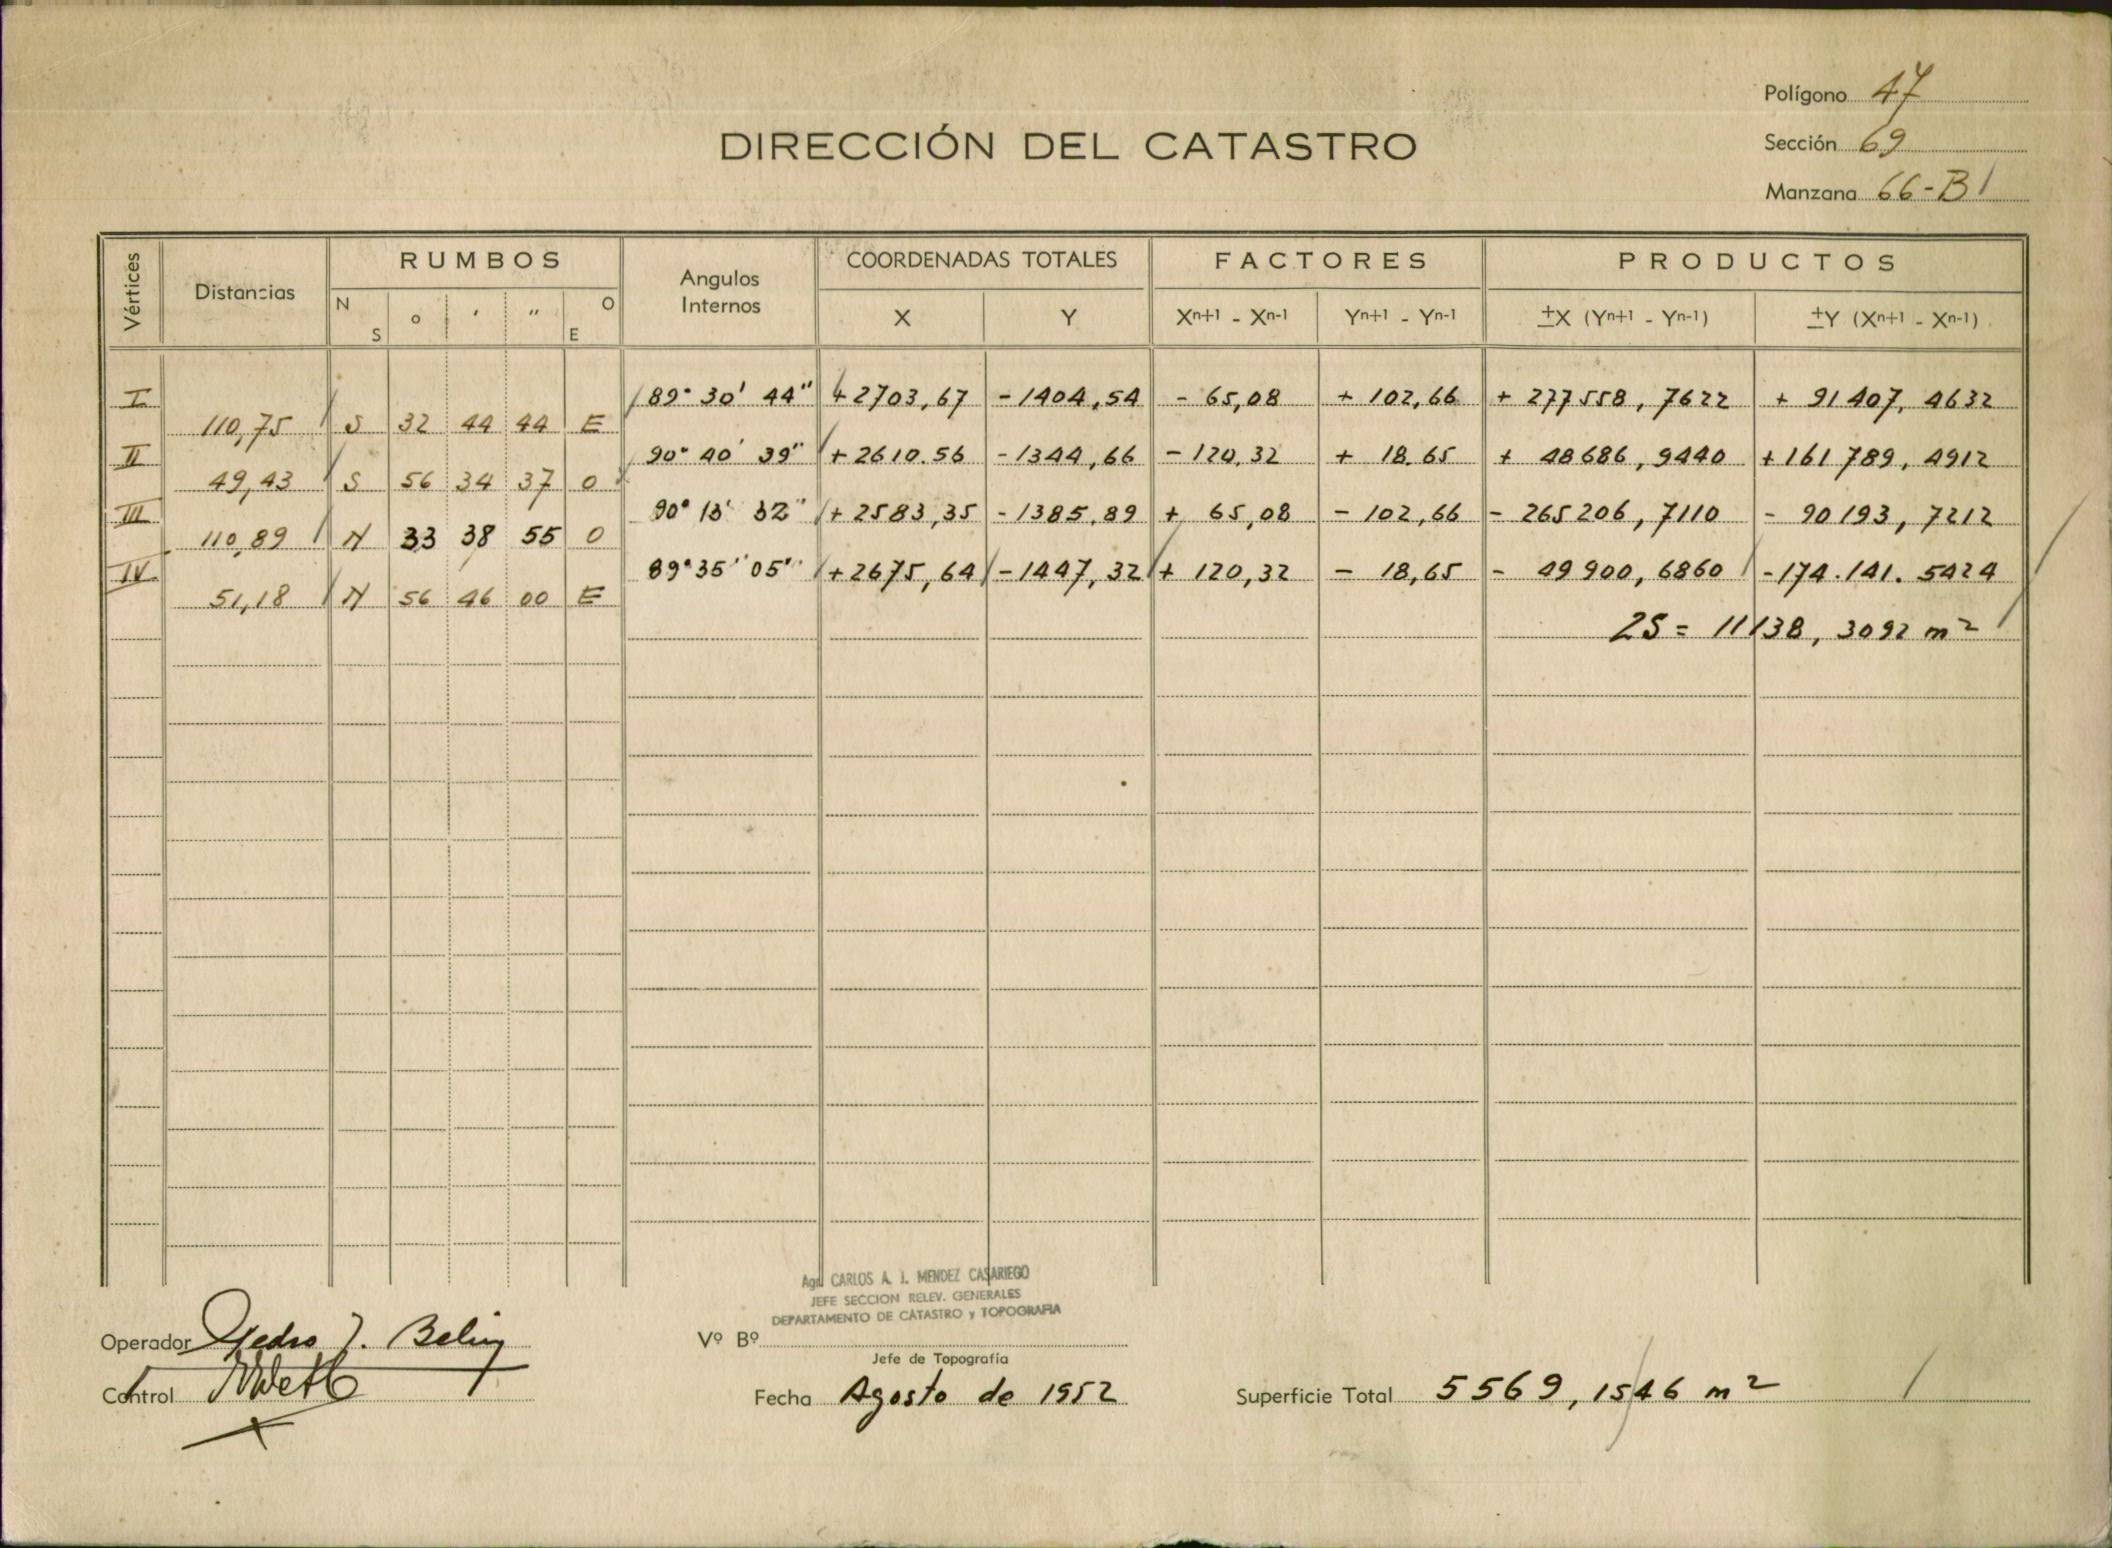 Polígono 47
Sección 69
Manzana 66-B
DIRECCIÓN DEL CATASTRO
Vértices Distancias RUMBOS Angulos Internos COORDENADAS TOTALES FACTORES PRODUCTOS
N S o ' '' O E X Y Xn+1 - Xn-1 Yn+1 - Yn-1 ±X (Yn+1 - Yn-1) ±Y (Xn+1 - Xn-1)
I 89° 30' 44" +2703,67 -1404,54 - 65,08 + 102,66 + 277558,7622 + 91407,4632
110,75 S 32 44 44 E
II 90° 40' 39" +2610.56 -1344,66 -120,32 + 18.65 + 48686,9440 +161789,4912
49,43 S 56 34 37 O
III 90° 13' 32" +2583,35 -1385,89 + 65,08 - 102,66 - 265206,7110 - 90193,7212
110,89 N 33 38 55 O
IV 89° 35'' 05'' +2675,64 -1447,32 + 120,32 - 18,65 - 49900,6860 -174.141.5424
51,18 N 56 46 00 E
2S = 11138,3092 m²
Agr. CARLOS A. I. MENDEZ CASARIEGO
JEFE SECCION RELEV. GENERALES
DEPARTAMENTO DE CATASTRO y TOPOGRAFIA
Operador Pedro J.
Vº Bº
Jefe de Topografía
Control
Fecha Agosto de 1952
Superficie Total 5569,1546 m²